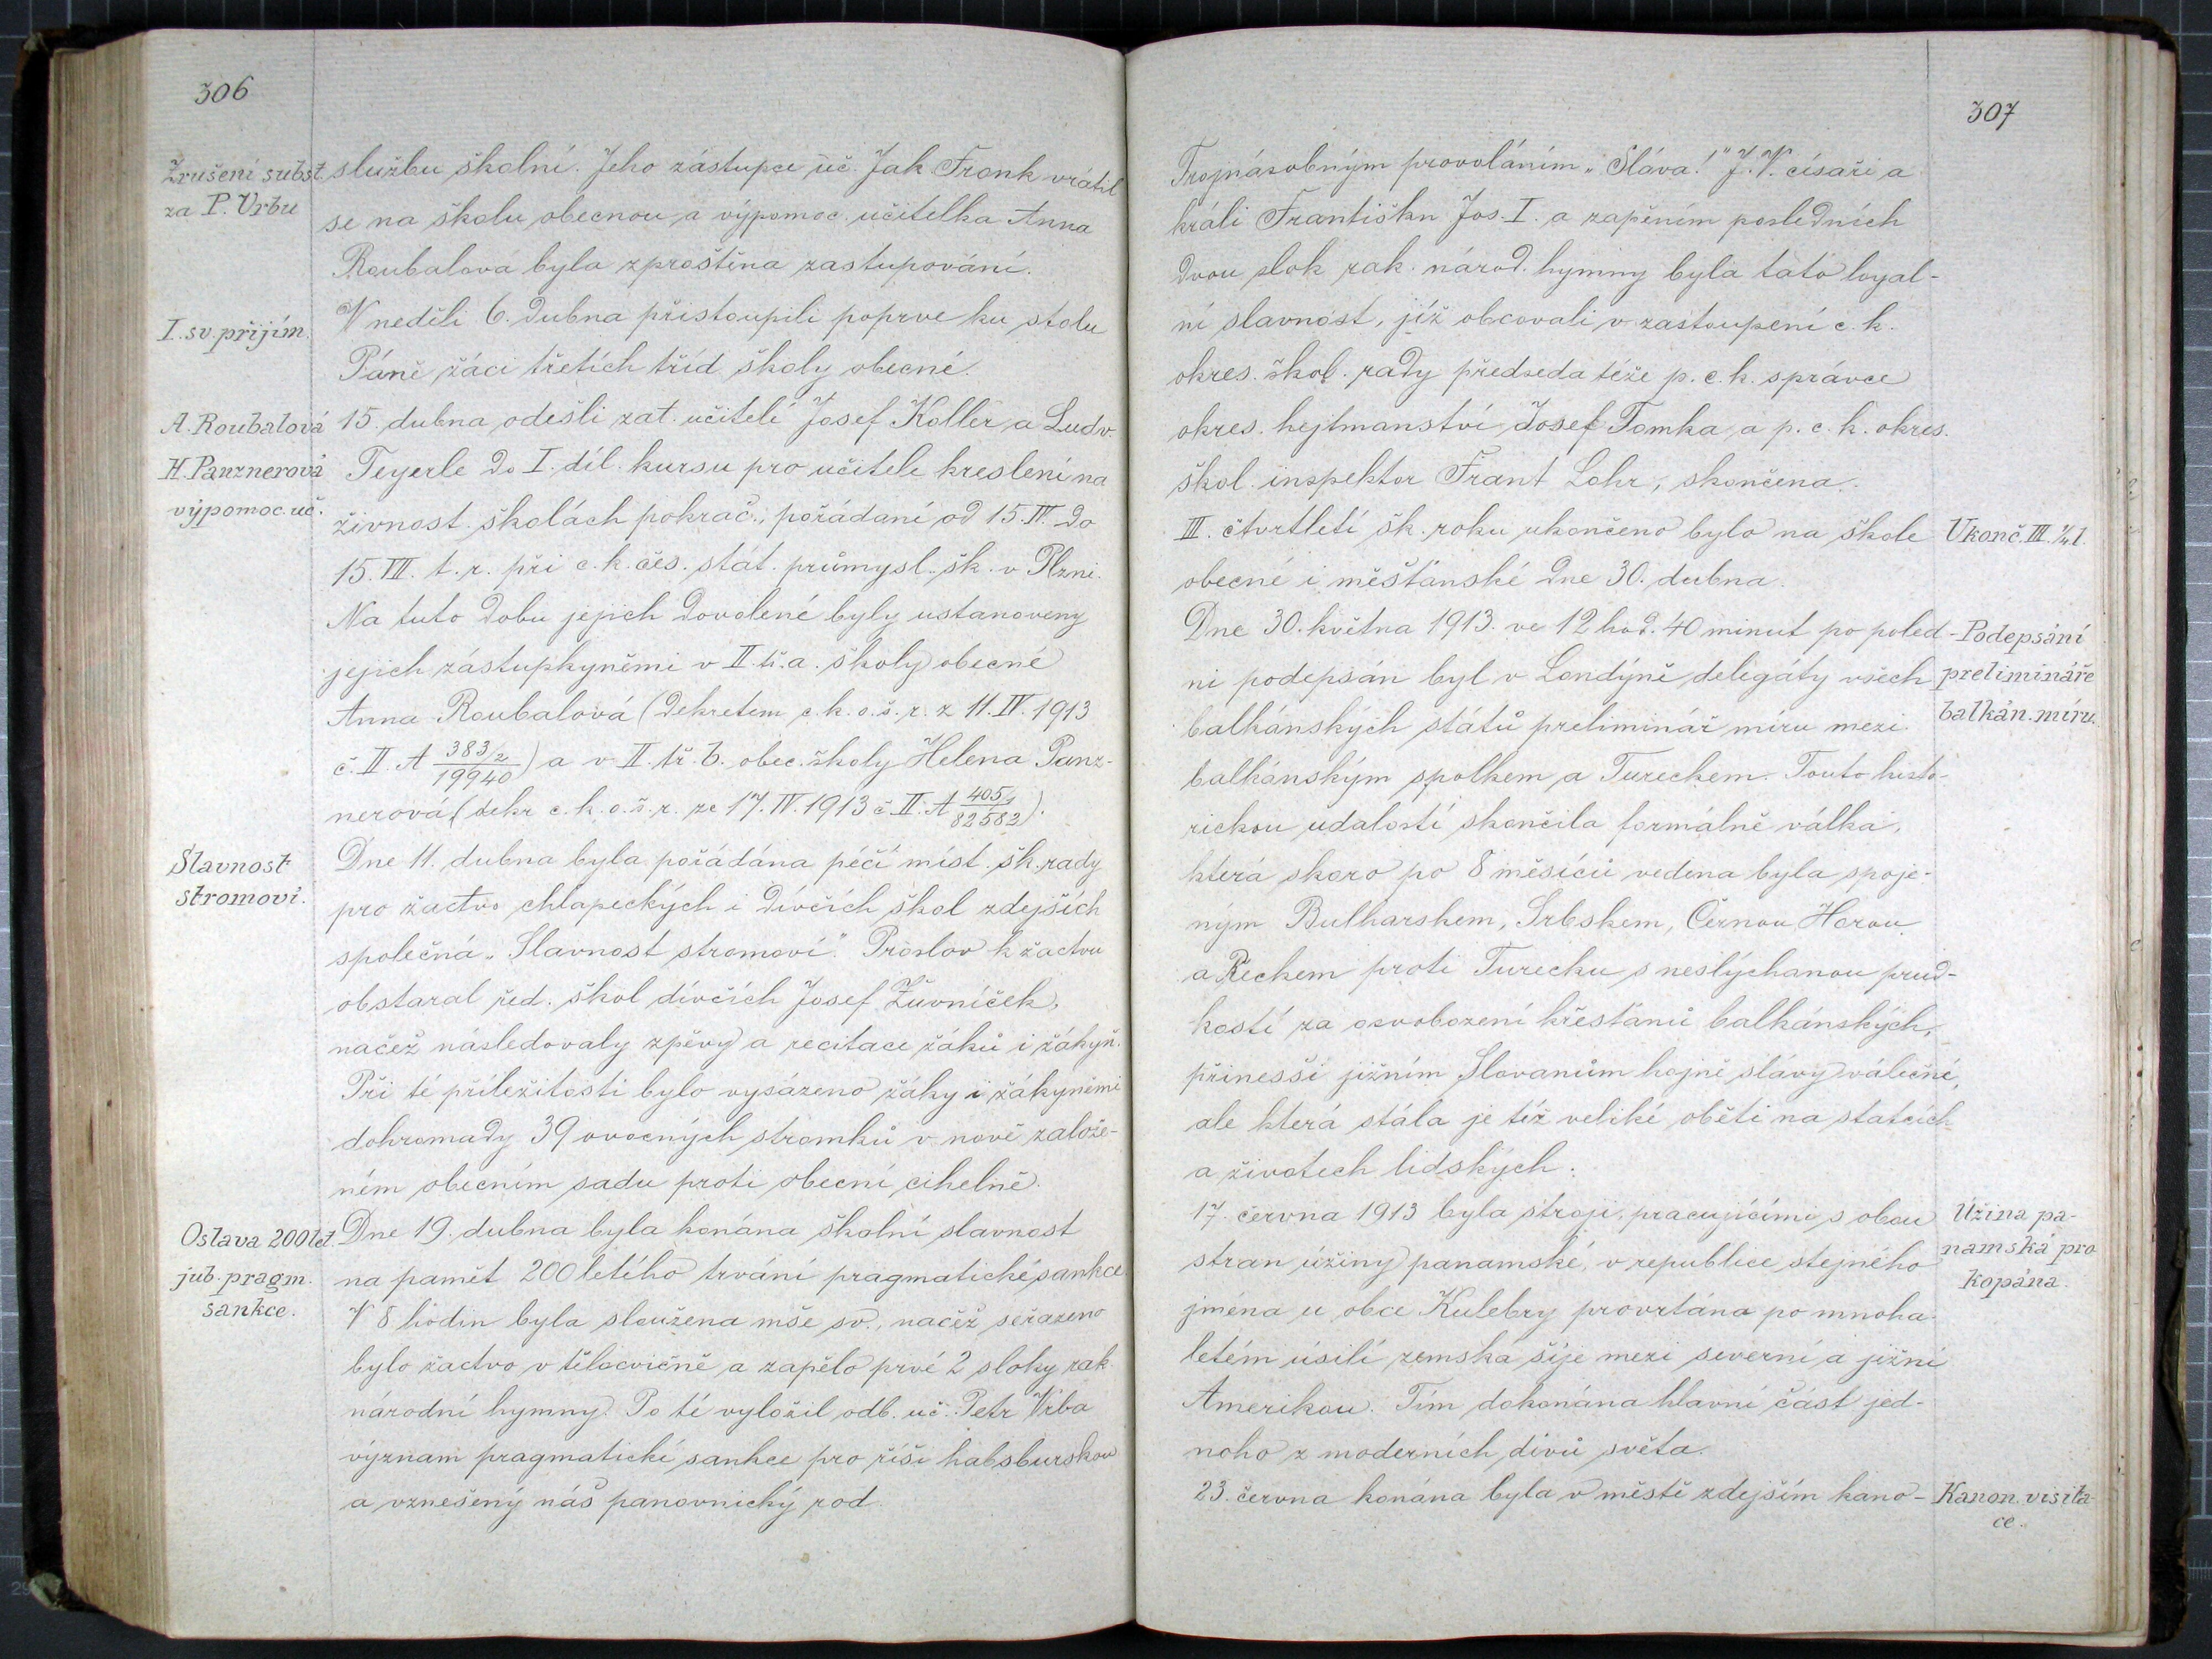 306
Zrušení subst.
za P. Vrbu
službu školní. Jeho zástupce uč. Jak Fronk vrátil
se na školu obecnou a výpomoc. učitelka Anna
Roubalova byla zproštěna zastupování.
I. sv. přijím.
V neděli 6. dubna přistoupili poprve ku stolu
Páně žáci třetích tříd školy obecné.
A. Roubalová
H. Panznerová
výpomoc. uč.
15. dubna odešli zat. učitelé Josef Koller a Ludv.
Teyerle do I. díl. kursu pro učitele kreslení na
živnost. školách pokrač., pořádaní od 15. IV. do
15. VII. t. r. při c. k. čes. stát. průmysl. šk. v Plzni.
Na tuto dobu jejich dovolené byly ustanoveny
jejich zástupkyněmi v II. tř. a. školy obecné
Anna Roubalová (dekretem c. k. o. š. r. z 11. IV. 1913
č. II. A 383/2 / 19940) a v II. tř. b. obec. školy Helena Panz-
nerová (dekr c. k. o. š. r. ze 17. IV. 1913 č. II. A 405/1 / 82582).
Slavnost
stromoví.
Dne 11. dubna byla pořádána péčí míst. šk. rady
pro žactvo chlapeckých i dívčích škol zdejších
společná „Slavnost stromoví." Proslov k žactvu
obstaral řed. škol dívčích Josef Žuvníček,
načež následovaly zpěvy a recitace žáků i žákyň.
Při té příležitosti bylo vysázeno žáky i žákyněmi
dohromady 39 ovocných stromků v nově založe-
ném obecním sadu proti obecní cihelně.
Oslava 200let.
jub. pragm.
sankce.
Dne 19. dubna byla konána školní slavnost
na pamět 200letého trvání pragmatické sankce.
V 8 hodin byla sloužena mše sv., načež seřazeno
bylo žactvo v tělocvičně a zapělo prvé 2 sloky rak
národní hymny. Po té vyložil odb. uč. Petr Vrba
význam pragmatické sankce pro říši habsburskou
a vznešený náš panovnický rod.
307
Trojnásobným provoláním „Sláva!" J. V. císaři a
králi Františku Jos. I. a zapěním posledních
dvou slok rak. národ. hymny byla tato loyal-
ní slavnost, jíž obcovali v zastoupení c. k.
okres. škol. rady předseda téže p. c. k. správce
okres. hejtmanství Josef Tomka a p. c. k. okres.
škol. inspektor Frant Lohr, skončena.
III. čtvrtletí šk. roku ukončeno bylo na škole
obecné i měšťánské dne 30. dubna.
Ukonč. III. 1/4 l.
Dne 30. května 1913. ve 12 hod. 40 minut po poled-
ni podepsán byl v Londýně delegáty všech
balkánských států preliminář míru mezi
balkánským spolkem a Tureckem. Touto histo-
rickou událostí skončila formálně válka,
která skoro po 8 měsíců vedena byla spoje-
ným Bulharskem, Srbskem, Černou Horou
a Řeckem proti Turecku s neslýchanou prud-
kostí za osvobození křesťanů balkánských,
přinesši jižním Slovanům hojně slávy válečné,
ale která stála je též veliké oběti na statcích
a životech lidských.
Podepsání
preliminaře
balkán. míru.
17. června 1913 byla stroji, pracujícími s obou
stran úžiny panamské, v republice stejného
jména u obce Kulebry provrtána po mnoha
letém úsilí zemská šíje mezi severní a jižní
Amerikou. Tím dokonána hlavní část jed-
noho z moderních divů světa.
Úžina pa-
namská pro
kopána.
23. června konána byla v městě zdejším kano-
Kanon. visita-
ce.